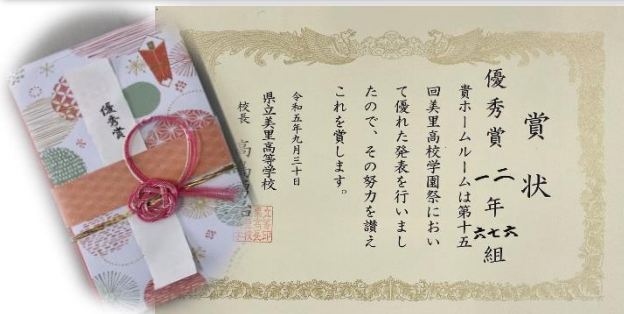 賞状
優秀賞 一二年六七六組
貴ホームルームは第十五
回美里高校学園祭におい
て優れた発表を行いまし
たので、その努力を讃え
これを賞します。
令和五年九月三十日
県立美里高等学校
校長 高
優秀賞